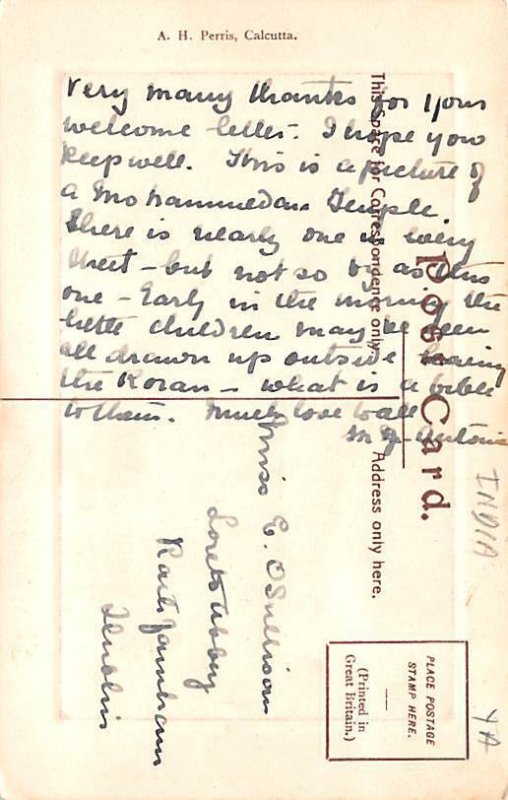 A. H. Perris, Calcutta.
Very many thanks for your
welcome letter. I hope you
keep well. This is a picture of
a Mohammedan Temple.
There is nearly one in every
street - but not so big as this
one - Early in the morning the
little children may be seen
all drawn up outside
the Koran - what is a bible
to them. Much love to all
M. Antonia
This Space for Correspondence only.
Post Card.
Address only here.
Miss E. O'Sullivan
Loreto Abbey
Rathfarnham
Dublin
PLACE POSTAGE
STAMP HERE.
(Printed in
Great Britain.)
INDIA
YA